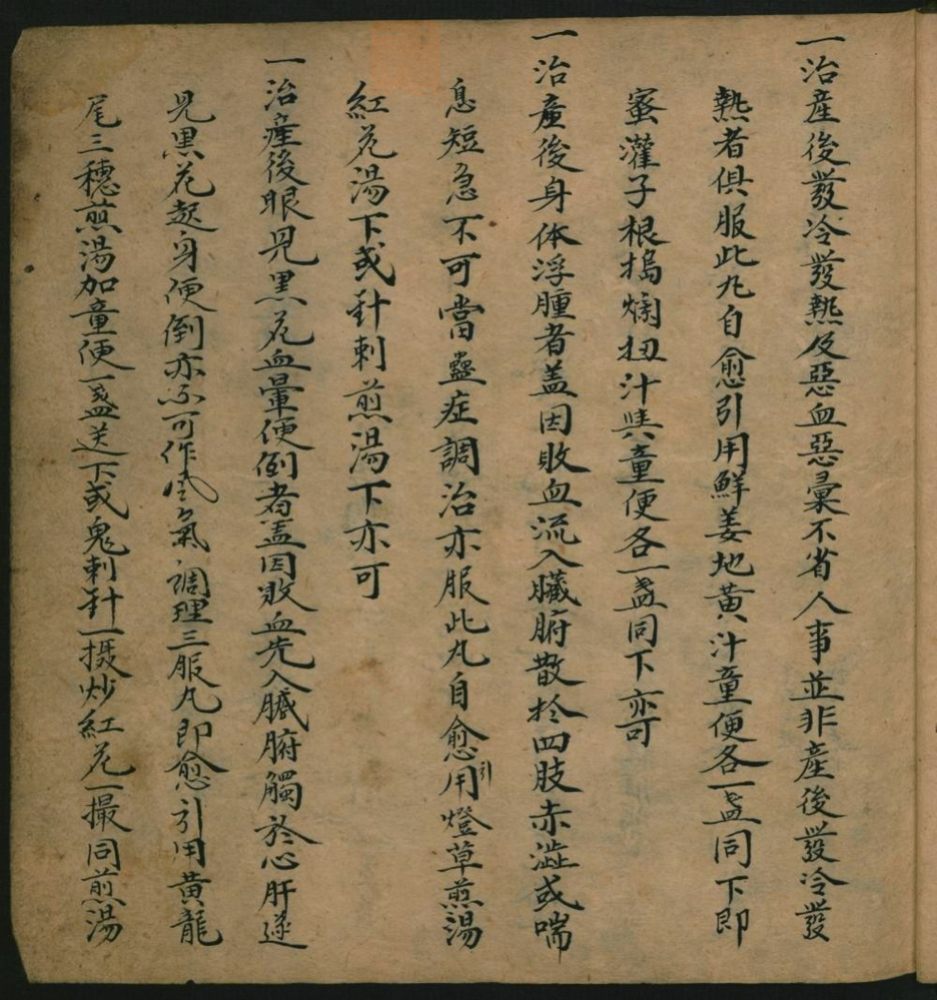 一治産後發冷發熱及惡血惡彙不省人事並非産後發冷發
熱者俱服此丸自愈引用鮮姜地黄汁童便各一盞同下即
蜜灌子根搗爛扭汁與童便各一盞同下亦可
一治産後身体浮腫者盖因敗血流入臟腑散於四肢赤澁或喘
息短急不可當蠱症調治亦服此丸自愈引用燈草煎湯
紅花湯下或針刺煎湯下亦可
一治産後眼見黑花血暈便倒者盖因敗血先入臟腑觸於心肝遂
見黑花起身便倒亦不可作風氣調理三服丸即愈引用黄龍
尾三穗煎湯加童便一盞送下或鬼刺針一撮炒紅花一撮同煎湯